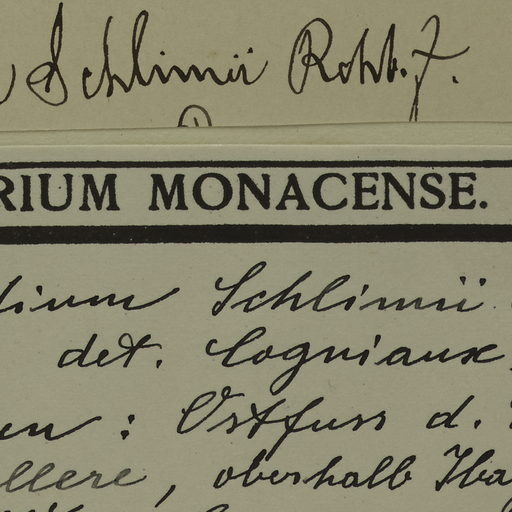 Schlimii Rchb. f.
RIUM MONACENSE.
dium Schlimii
det. Cogniaux
en : Ostfuss d.
llere, oberhalb Iba